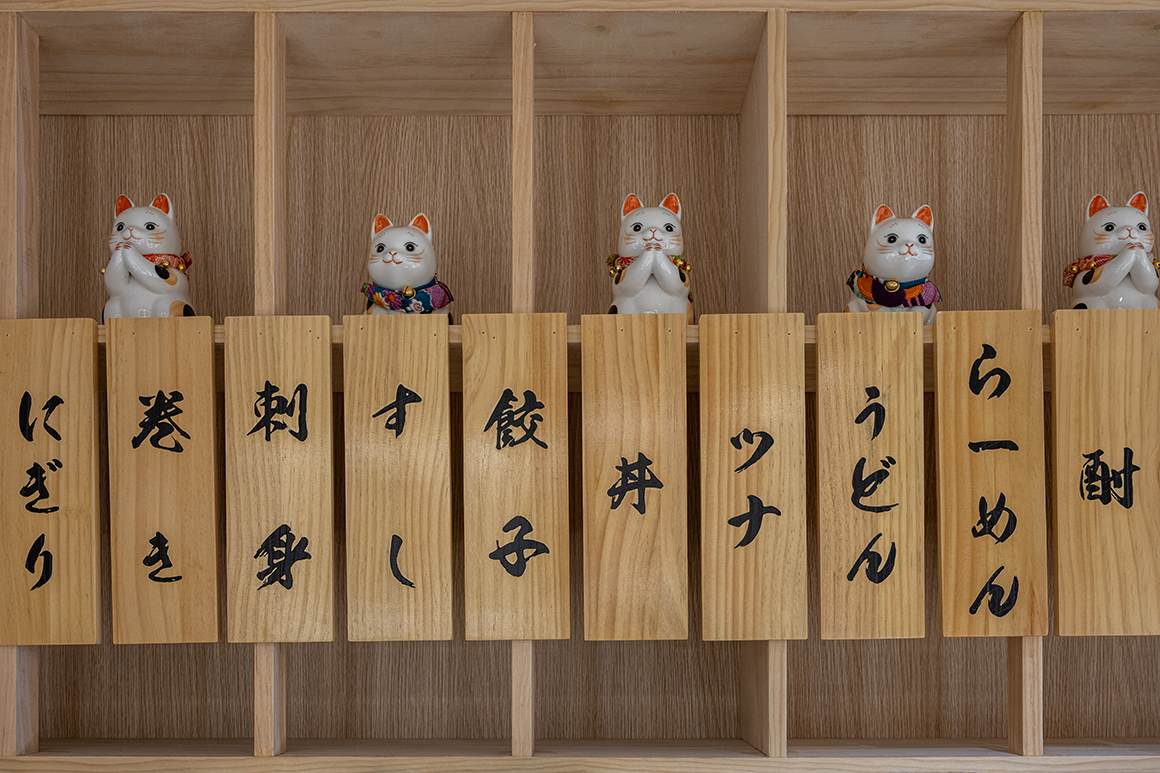 酎
らーめん
うどん
ツナ
丼
餃子
すし
刺身
巻き
にぎり